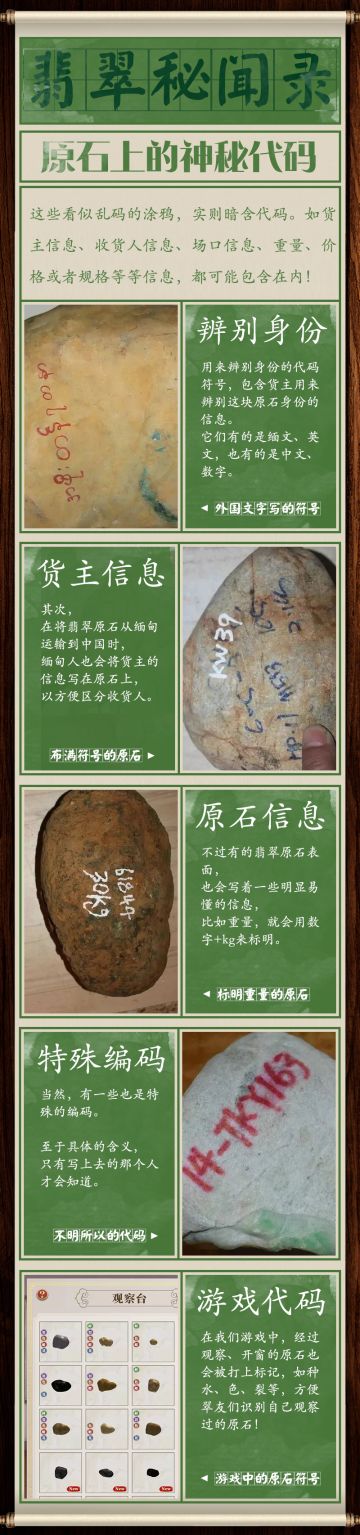 翡翠秘闻录
原石上的神秘代码
这些看似乱码的涂鸦，实则暗含代码。如货
主信息、收货人信息、场口信息、重量、价
格或者规格等等信息，都可能包含在内！
辨别身份
用来辨别身份的代码
符号，包含货主用来
辨别这块原石身份的
信息。
它们有的是缅文、英
文，也有的是中文、
数字。
◄ 外国文字写的符号
货主信息
其次，
在将翡翠原石从缅甸
运输到中国时，
缅甸人也会将货主的
信息写在原石上，
以方便区分收货人。
布满符号的原石 ►
KW39
原石信息
不过有的翡翠原石表
面，
也会写着一些明显易
懂的信息，
比如重量，就会用数
字+kg来标明。
◄ 标明重量的原石
61844
30Kg
特殊编码
当然，有一些也是特
殊的编码。
至于具体的含义，
只有写上去的那个人
才会知道。
不明所以的代码 ►
14-TKY1169
观察台
New
New
New
游戏代码
在我们游戏中，经过
观察、开窗的原石也
会被打上标记，如种
水、色、裂等，方便
翠友们识别自己观察
过的原石！
◄ 游戏中的原石符号